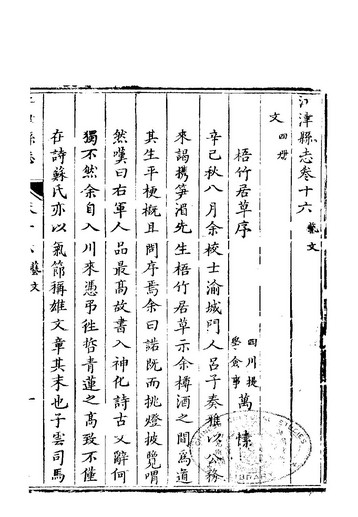 江津縣志卷十六 藝文
文 四冊
梧竹居草序
四川提學僉事 萬愫
辛巳秋八月余校士渝城門人呂子奏雅以公務
來謁攜筍湄先生梧竹居草示余樽酒之間爲道
其生平梗概且問序焉余曰諾旣而挑燈披覽喟
然嘆曰右軍人品最高故書入神化詩古文辭何
獨不然余自入川來憑弔徃哲青蓮之高致不僅
在詩蘇氏亦以氣節稱雄文章其末也子雲司馬
江津縣志
藝文
一
LIBRARY